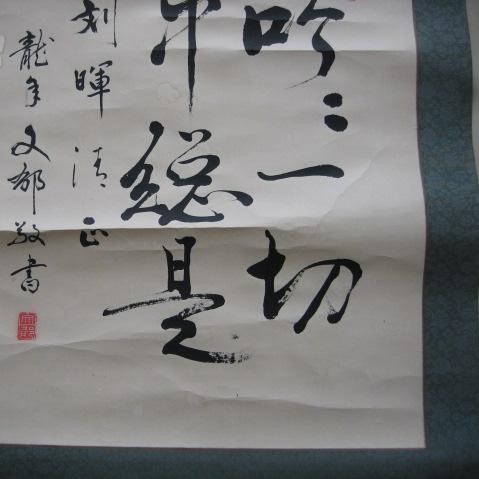 吟々一切
總是
刘暉清正
龍年文郁敬書